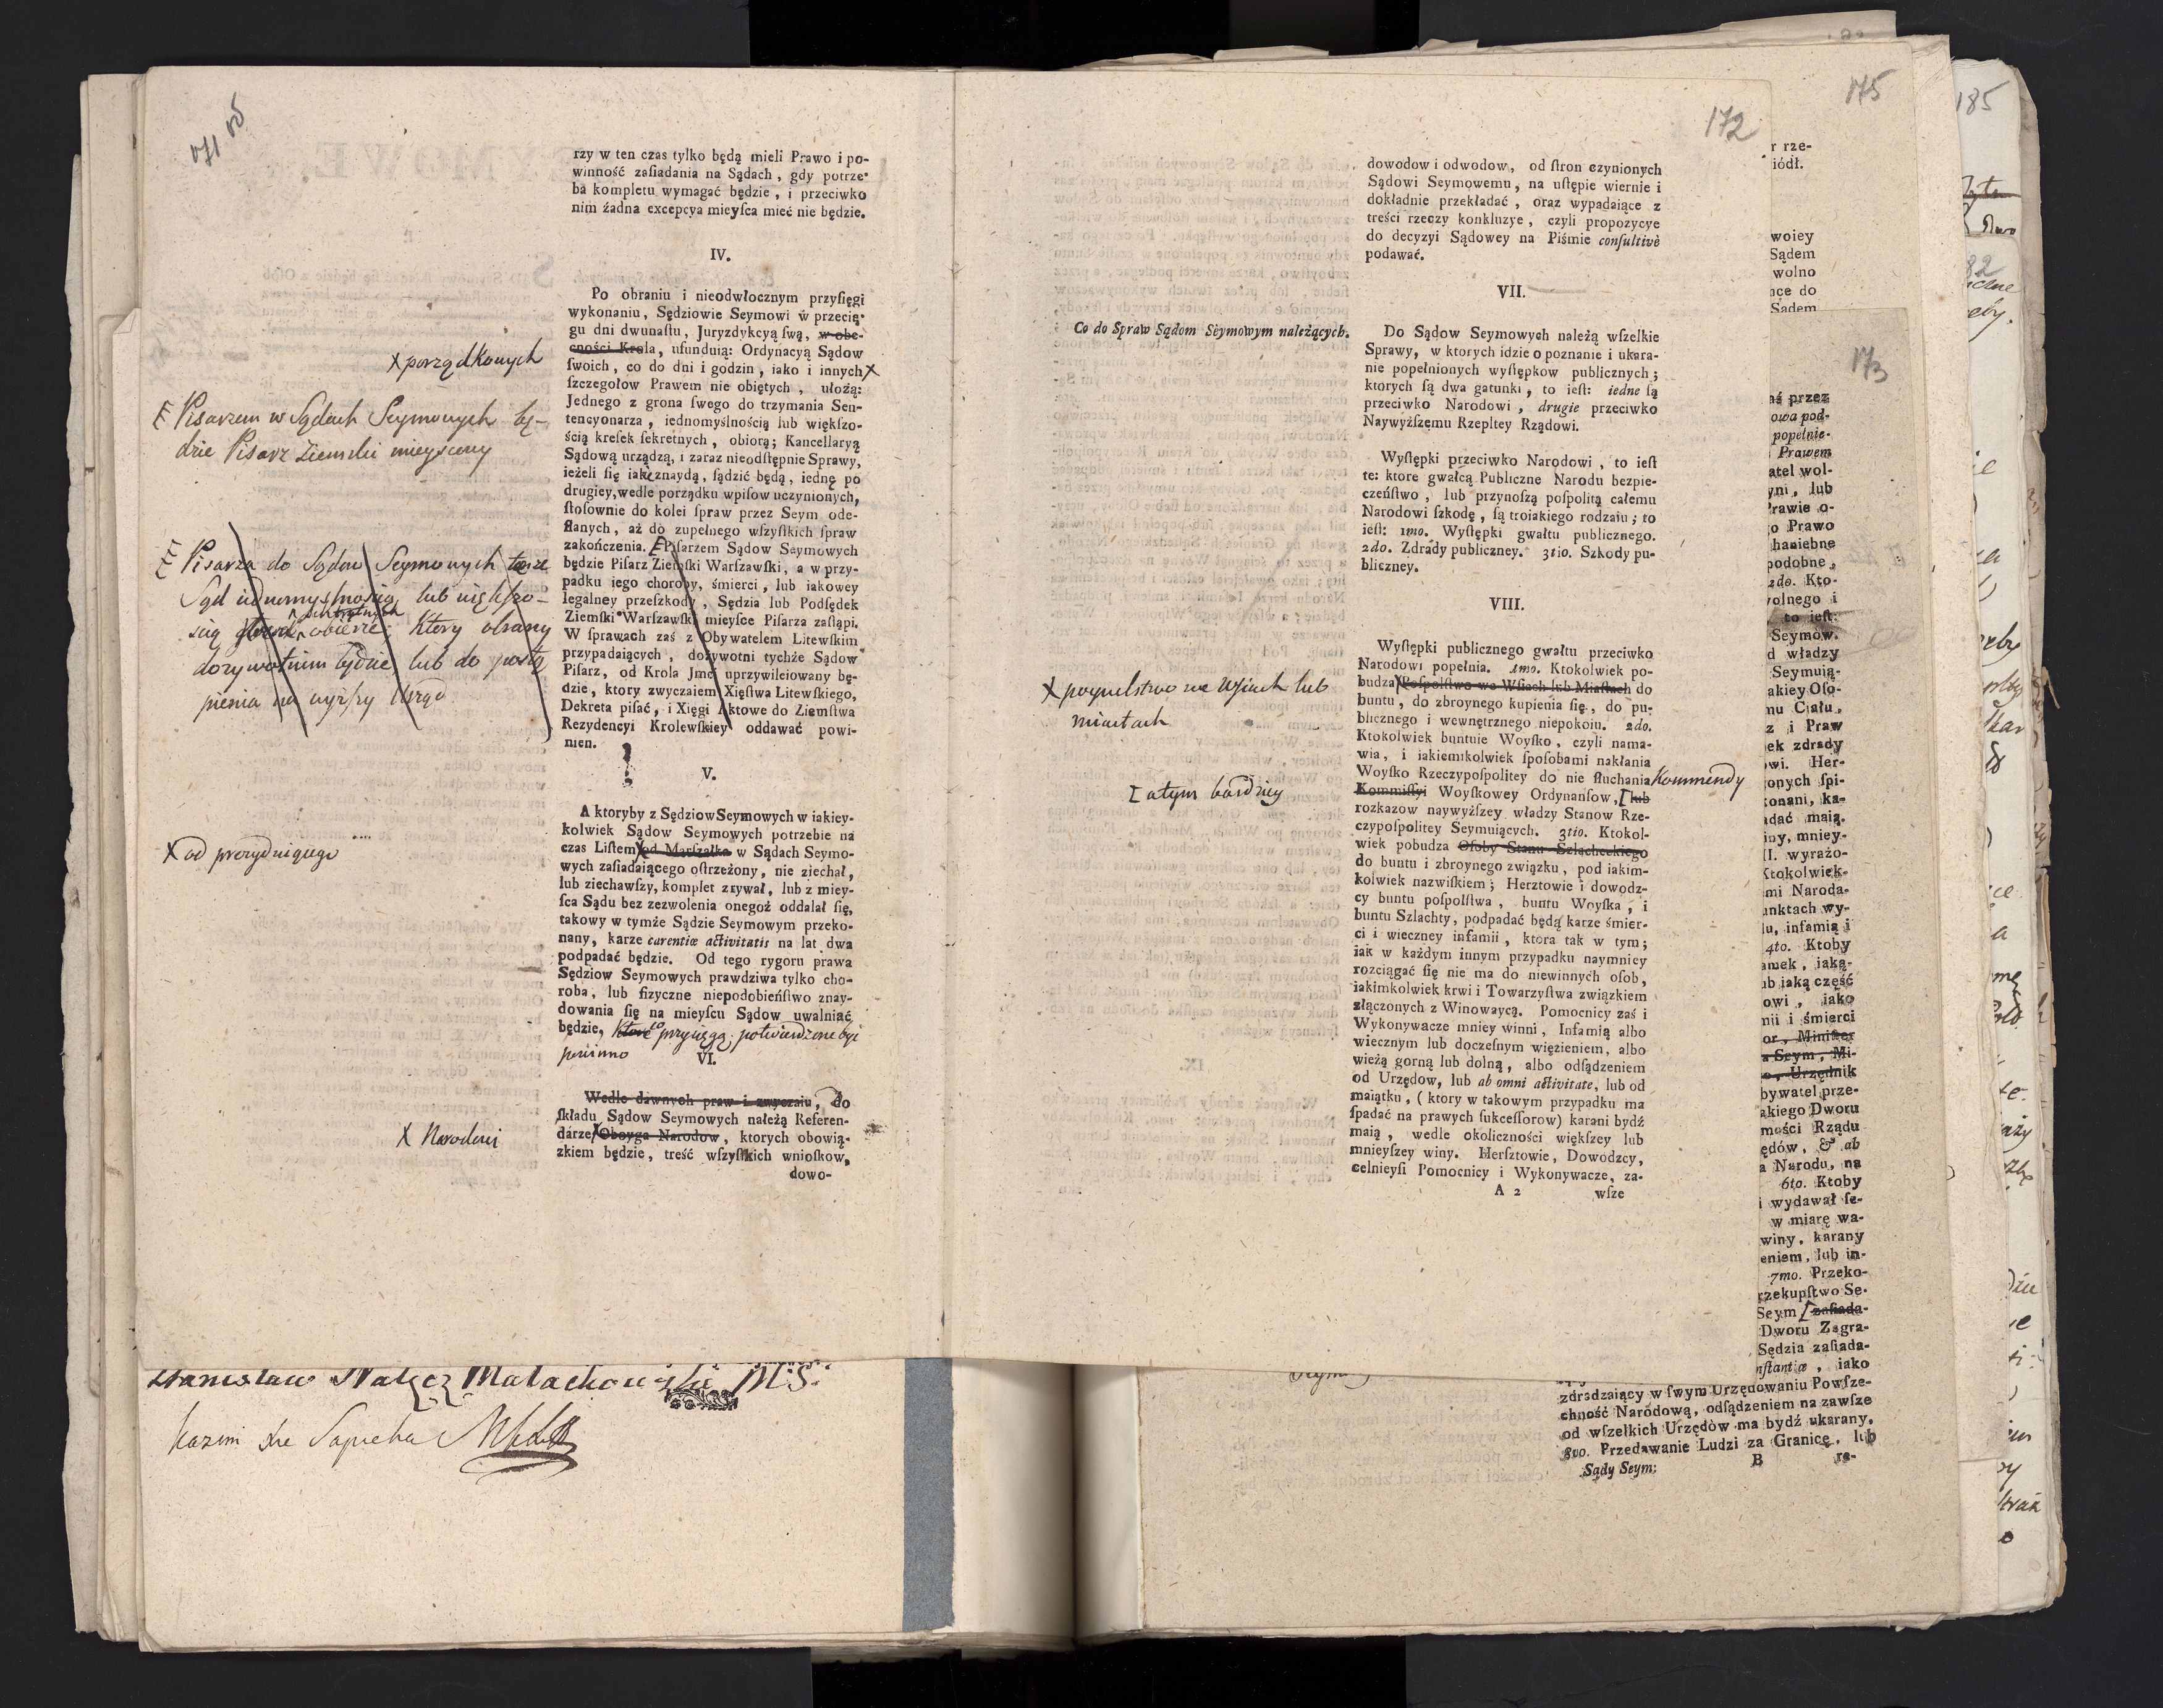 rzy w ten czas tylko będą mieli Prawo i po-
winność zaſiadania na Sądach, gdy potrze-
ba kompletu wymagać będzie, i przeciwko
nim żadna excepcya mieyſca mieć nie będzie.
IV.
Po obraniu i nieodwłocznym przyſięgi
wykonaniu, Sędziowie Seymowi w przecią-
gu dni dwunaſtu, Juryzdykcyą ſwą, w obe-
cności Krola, ufunduią: Ordynacyą Sądow
ſwoich, co do dni i godzin, iako i innych X
X porządkowych
ſzczegołow Prawem nie obiętych, ułożą:
Jednego z grona ſwego do trzymania Sen-
tencyonarza, iednomyślnością lub więkſzo-
ścią kreſek ſekretnych, obiorą; Kancellaryą
Sądową urządzą, i zaraz nieodſtępnie Sprawy,
ieżeli ſię iakie znaydą, ſądzić będą, iednę po
drugiey, wedle porządku wpiſow uczynionych,
ſtoſownie do kolei ſpraw przez Seym ode-
ſłanych, aż do zupełnego wſzyſtkich ſpraw
zakończenia. Piſarzem Sądow Seymowych
będzie Piſarz Ziemſki Warſzawſki, a w przy-
padku iego choroby, śmierci, lub iakowey
legalney przeſzkody, Sędzia lub Podſędek
Ziemſki Warſzawſki mieyſce Piſarza zaſtąpi.
W ſprawach zaś z Obywatelem Litewſkim
przypadaiących, dożywotni tychże Sądow
Piſarz, od Krola Jmci uprzywileiowany bę-
dzie, ktory zwyczaiem Xięſtwa Litewſkiego,
Dekreta piſać, i Xięgi Aktowe do Ziemſtwa
Rezydencyi Krolewſkiey oddawać powi-
nien.
Pisarzem w Sądach Seymowych bę-
dzie Pisarz Ziemski mieyscowy
Pisarza do Sądow Seymowych tenże
Sąd iednomyslnoscią lub więkſzo-
scią obierze; Ktory obrany
dozywotnim będzie, lub do postą
pienia na wyżſzy Urząd
V.
A ktoryby z Sędziow Seymowych w iakiey-
kolwiek Sądow Seymowych potrzebie na
czas Liſtem X od Marſzałka w Sądach Seymo-
X od prezyduiącego
wych zaſiadaiącego oſtrzeżony, nie ziechał,
lub ziechawſzy, komplet zrywał, lub z miey-
ſca Sądu bez zezwolenia onegoż oddalał ſię,
takowy w tymże Sądzie Seymowym przeko-
nany, karze carentiæ activitatis na lat dwa
podpadać będzie. Od tego rygoru prawa
Sędziow Seymowych prawdziwa tylko cho-
roba, lub fizyczne niepodobieńſtwo znay-
dowania ſię na mieyſcu Sądow uwalniać
będzie, Ktore to przysięgą potwierdzone być
powinno
VI.
Wedle dawnych praw i zwyczaiu, do
ſkładu Sądow Seymowych należą Referen-
darze X Oboyga Narodow, ktorych obowią-
X Narodowi
zkiem będzie, treść wſzyſtkich wnioſkow,
dowo-
Stanisław Nałęcz Małachowski M:S:
Kazim Xże Sapieha
172
dowodow i odwodow, od ſtron czynionych
Sądowi Seymowemu, na uſtępie wiernie i
dokładnie przekładać, oraz wypadaiące z
treści rzeczy konkluzye, czyli propozycye
do decyzyi Sądowey na Piśmie conſultivè
podawać.
VII.
Co do Spraw Sądom Seymowym należących.
Do Sądow Seymowych należą wſzelkie
Sprawy, w ktorych idzie o poznanie i ukara-
nie popełnionych wyſtępkow publicznych;
ktorych ſą dwa gatunki, to ieſt: iedne ſą
przeciwko Narodowi, drugie przeciwko
Naywyżſzemu Rzepltey Rządowi.
Wyſtępki przeciwko Narodowi, to ieſt
te: ktore gwałcą Publiczne Narodu bezpie-
czeńſtwo, lub przynoſzą poſpolitą całemu
Narodowi ſzkodę, ſą troiakiego rodzaiu; to
ieſt: 1mo. Wyſtępki gwałtu publicznego.
2do. Zdrady publiczney. 3tio. Szkody pu-
bliczney.
VIII.
Wyſtępki publicznego gwałtu przeciwko
Narodowi popełnia. 1mo. Ktokolwiek po-
budza X Poſpolſtwo we Wſiach lub Miaſtach do
X pospolstwo we Wsiach lub
miastach
buntu, do zbroynego kupienia ſię, do pu-
blicznego i wewnętrznego niepokoiu. 2do.
Ktokolwiek buntuie Woyſko, czyli nama-
wia, i iakiemikolwiek ſpoſobami nakłania
Woyſko Rzeczypoſpolitey do nie ſłuchania Kommendy
Kommiſſyi Woyſkowey Ordynanſow, [ lub
[ a tym bardziey
rozkazow naywyżſzey władzy Stanow Rze-
czypoſpolitey Seymuiących. 3tio. Ktokol-
wiek pobudza Oſoby Stanu Szlacheckiego
do buntu i zbroynego związku, pod iakim-
kolwiek nazwiſkiem; Herztowie i dowodz-
cy buntu poſpolſtwa, buntu Woyſka, i
buntu Szlachty, podpadać będą karze śmier-
ci i wieczney infamii, ktora tak w tym;
iak w każdym innym przypadku naymniey
rozciągać ſię nie ma do niewinnych oſob,
iakimkolwiek krwi i Towarzyſtwa związkiem
złączonych z Winowaycą. Pomocnicy zaś i
Wykonywacze mniey winni, Infamią albo
wiecznym lub doczeſnym więzieniem, albo
wieżą gorną lub dolną, albo odſądzeniem
od Urzędow, lub ab omni activitate, lub od
maiątku, (ktory w takowym przypadku ma
ſpadać na prawych ſukceſſorow) karani bydź
maią, wedle okoliczności większey lub
mnieyſzey winy. Herſztowie, Dowodzcy,
celnieyſi Pomocnicy i Wykonywacze, za-
A 2 wſze
175
185
173
r rze-
iódł.
woiey
Sądem
wolno
nce do
Sądem
aś przez
owa pod-
popełnie-
Prawem
atel wol-
yni, lub
Prawie o-
o Prawo
haniebne
podobne,
2do. Kto-
volnego i
to ieſt:
Seymow.
d władzy
Seymuią-
akiey Oſo-
mu Ciału,
z i Praw
ek zdrady
owi. Her-
onych ſpi-
konani, ka-
adać maią.
iny, mniey-
II. wyrażo-
Ktokolwiek-
mi Naroda-
unktach wy-
lu, infamią i
4to. Ktoby
amek, iaką-
ub iaką część
owi, iako
nii i śmierci
or, Miniſter
a Seym, Mi-
o, Urzędnik
bywatel prze-
akiego Dworu
mości Rządu
ędów, & ab
a Narodu, na
6to. Ktoby
i wydawał ſe-
w miarę wa-
winy, karany
eniem, lub in-
7mo. Przeko-
rzekupſtwo Se-
Seym [ zaſiada-
Dworu Zagra-
Sędzia zaſiada-
nſtantiæ, iako
zdradzaiący w ſwym Urzędowaniu Powſze-
chność Narodową, odſądzeniem na zawſze
od wſzelkich Urzędów ma bydź ukarany.
8vo. Przedawanie Ludzi za Granicę, lub
Sądy Seym: B re-